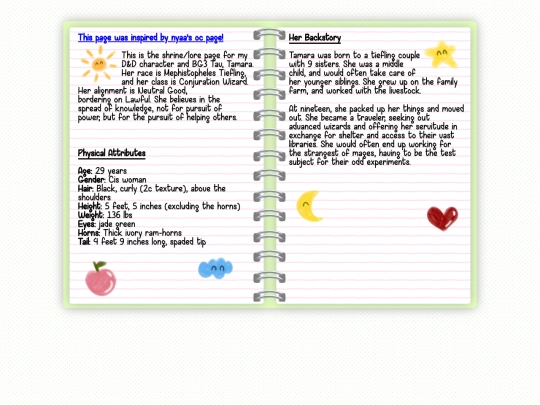 This page was inspired by nyaa's oc page!
This is the shrine/lore page for my
D&D character and BG3 Tau, Tamara.
Her race is Mephistopheles Tiefling,
and her class is Conjuration Wizard.
Her alignment is Neutral Good,
bordering on Lawful. She believes in the
spread of knowledge, not for pursuit of
power, but for the pursuit of helping others.
Physical Attributes
Age: 29 years
Gender: Cis woman
Hair: Black, curly (2c texture), above the
shoulders
Height: 5 feet, 5 inches (excluding the horns)
Weight: 136 lbs
Eyes: jade green
Horns: Thick ivory ram-horns
Tail: 4 feet 9 inches long, spaded tip
Her Backstory
Tamara was born to a tiefling couple
with 9 sisters. She was a middle
child, and would often take care of
her younger siblings. She grew up on the family
farm, and worked with the livestock.
At nineteen, she packed up her things and moved
out. She became a traveler, seeking out
advanced wizards and offering her servitude in
exchange for shelter and access to their vast
libraries. She would often end up working for
the strangest of mages, having to be the test
subject for their odd experiments.